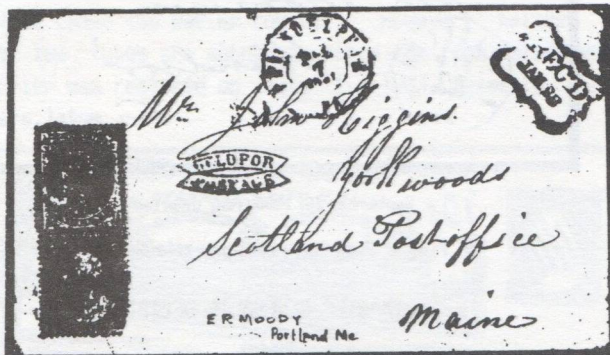 REC'D
Mr John Higgins
HELD FOR
POSTAGE
York woods
Scotland Post office
Maine
E R MOODY
Portland Me